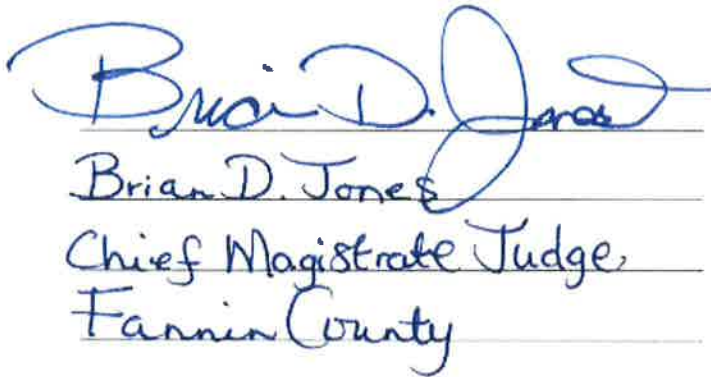 Brian D. Jones
Brian D. Jones
Chief Magistrate Judge
Fannin County